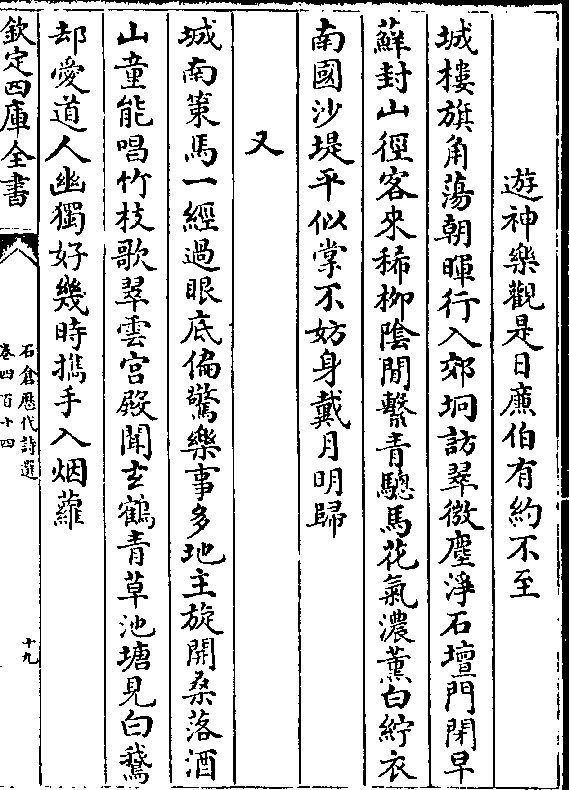 遊神樂觀是日廉伯有約不至
城樓旗角蕩朝暉行入郊坰訪翠微塵淨石壇門閉早
蘚封山徑客來稀柳陰閒繫青驄馬花氣濃薰白紵衣
南國沙堤平似掌不妨身戴月明歸
又
城南策馬一經過眼底偏驚樂事多地主旋開桑落酒
山童能唱竹枝歌翠雲宮殿聞玄鶴青草池塘見白鵞
却愛道人幽獨好幾時攜手入烟蘿
欽定四庫全書
石倉歷代詩選
卷四百十四
十九